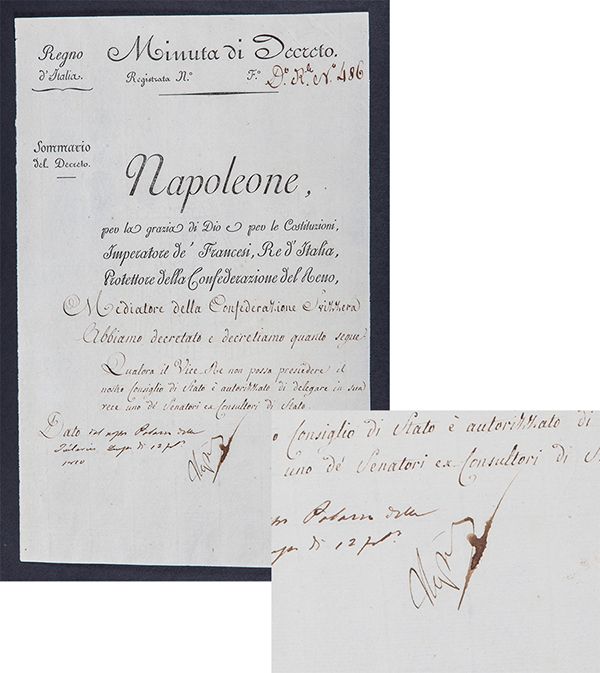 Regno
d'Italia.
Minuta di Decreto.
Registrata N.º F.º Dº. Rle. Nº. 486
Sommario
del Decreto.
Napoleone,
per la grazia di Dio e per le Costituzioni,
Imperatore de' Francesi, Re d'Italia,
Protettore della Confederazione del Reno,
Mediatore della Confederazione Svizzera
Abbiamo decretato e decretiamo quanto segue
Qualora il Vice-Re non possa presiedere il
nostro Consiglio di Stato è autorizzato di delegare in sua
vece uno de' Senatori ex-Consultori di Stato.
Dato dal Palazzo delle
di 12
1810
Consiglio di Stato è autorizzato di
uno de' Senatori ex-Consultori di
Palazzo delle
di 12